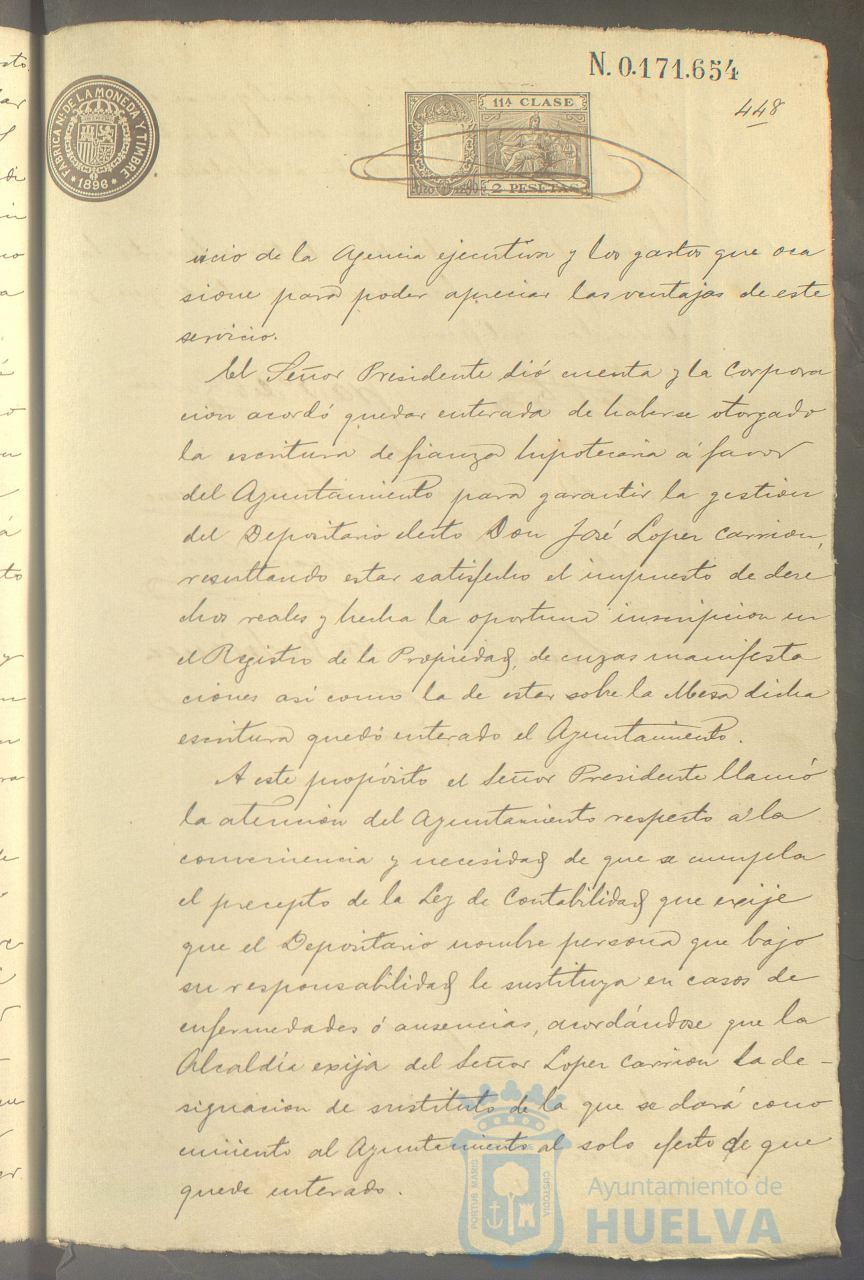 N. 0.171.654
448
FABRICA NAL DE LA MONEDA Y TIMBRE
* 1896 *
11ª CLASE
2 PESETAS
vicio de la Agencia ejecutiva y los gastos que oca
sione para poder apreciar las ventajas de este
servicio.
El Señor Presidente dió cuenta y la Corpora
cion acordó quedar enterada de haberse otorgado
la escritura de fianza hipotecaria á favor
del Ayuntamiento para garantir la gestion
del Depositario electo Don José Lopez Carrion,
resultando estar satisfecho el impuesto de dere
chos reales y hecha la oportuna inscripcion en
el Registro de la Propiedad, de cuyas manifesta
ciones asi como la de estar sobre la Mesa dicha
escritura quedó enterado el Ayuntamiento.
A este propósito el Señor Presidente llamó
la atencion del Ayuntamiento respecto á la
conveniencia y necesidad de que se cumpla
el precepto de la Ley de Contabilidad que exije
que el Depositario nombre persona que bajo
su responsabilidad le sustituya en casos de
enfermedades ó ausencias, acordándose que la
Alcaldía exija del Señor Lopez Carrion la de-
signacion de sustituto de la que se dará cono
cimiento al Ayuntamiento al solo efecto de que
quede enterado.
PORTUS MARIS
CUSTODIA
Ayuntamiento de
HUELVA